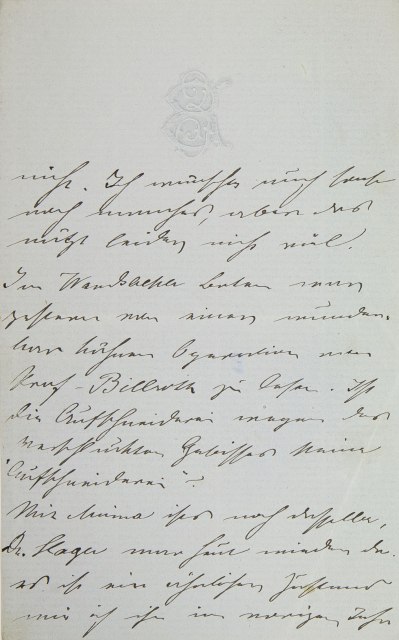 nicht. Ich wünschte mich heute
noch mancher, aber das
nützt leider nicht viel.
Im Wandsbeker Boten war
gestern von einer wunder-
bar kühnen Operation von
Prof. Billroth zu lesen. Ist
die Aufschneiderei wegen des
verschluckten Gebisses keine
"Aufschneiderei"?
Mit Mama ist noch dasselbe,
Dr. Hager war heut wieder da.
es ist ein ähnlicher Zustand
wie ich ihn im vorigen Jahr